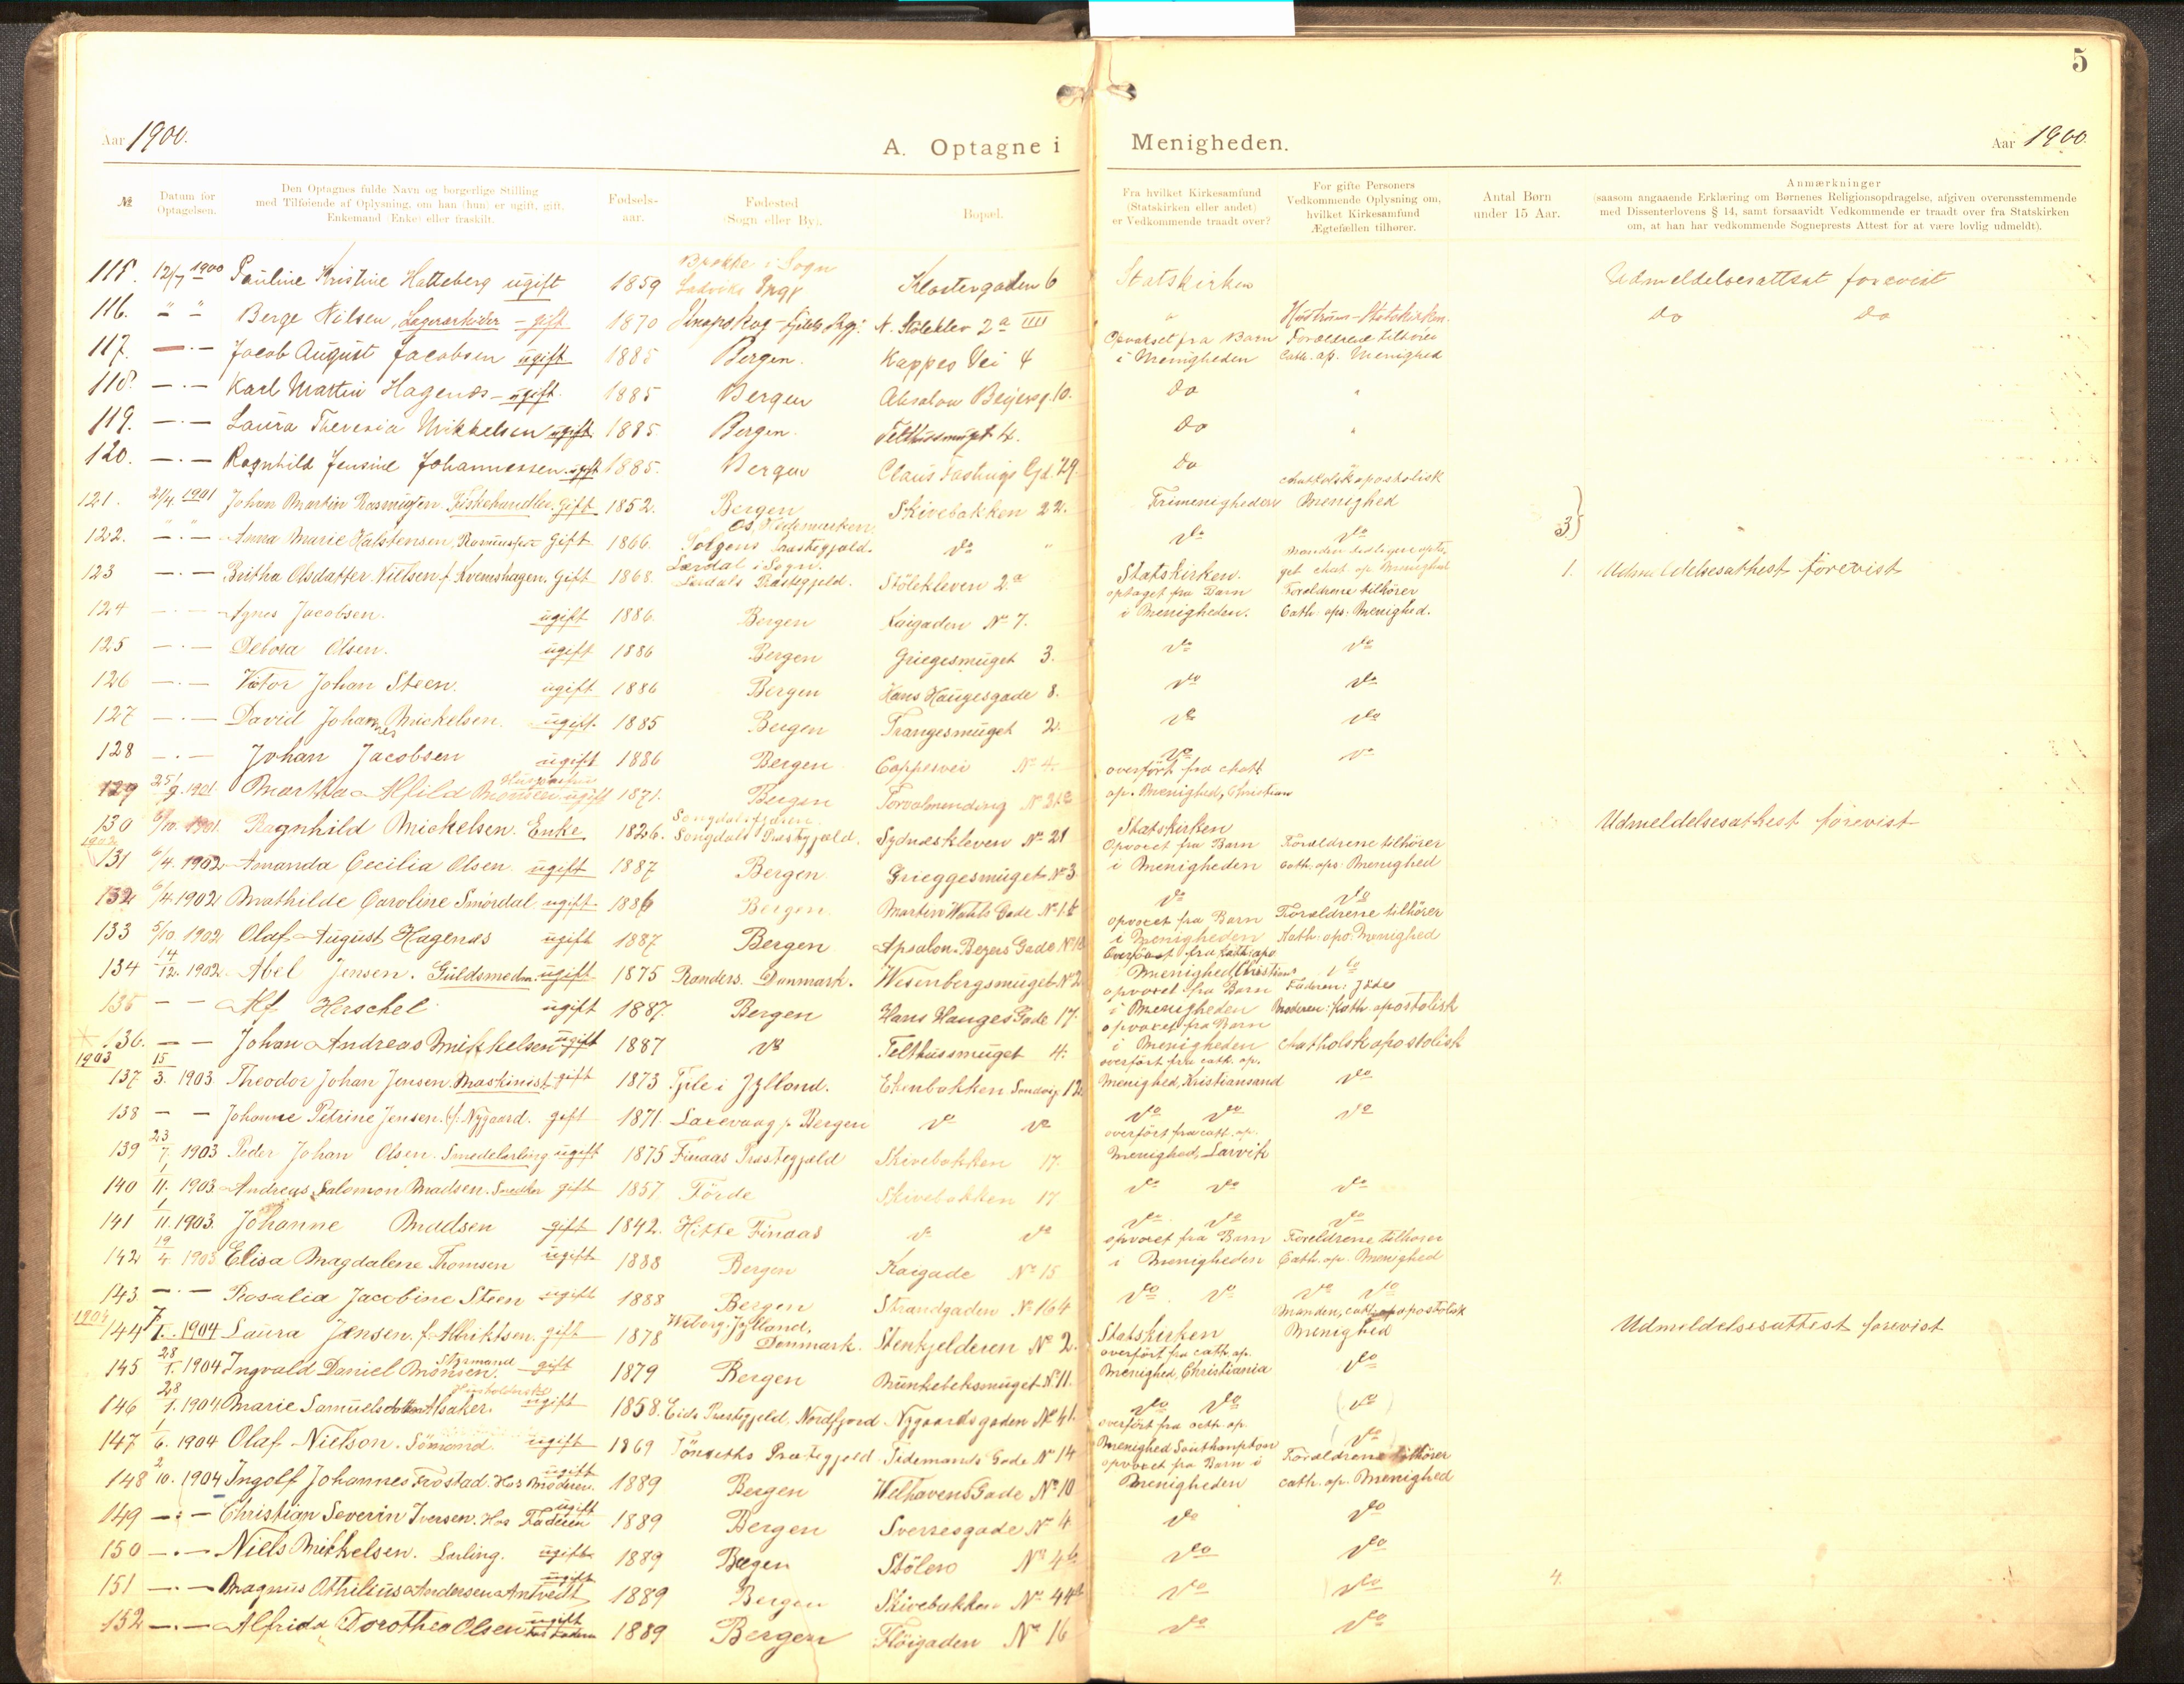 5
Aar 1900.
A. Optagne i Menigheden.
Aar 1900.
№
Datum for Optagelsen.
Den Optagnes fulde Navn og borgerlige Stilling med Tilføiende af Oplysning, om han (hun) er ugift, gift, Enkemand (Enke) eller fraskilt.
Fødselsaar.
Fødested (Sogn eller By).
Bopæl.
Fra hvilket Kirkesamfund (Statskirken eller andet) er Vedkommende traadt over?
For gifte Personers Vedkommende Oplysning om, hvilket Kirkesamfund Ægtefællen tilhører.
Antal Børn under 15 Aar.
Anmærkninger (saasom angaaende Erklæring om Børnenes Religionsopdragelse, afgiven overensstemmende med Dissenterlovens § 14, samt forsaavidt Vedkommende er traadt over fra Statskirken om, at han har vedkommende Sogneprests Attest for at være lovlig udmeldt).
115. 12/7 1900 Pauline Kristine Hatteberg ugift 1859 i Sogn Klostergaden 6 Statskirken Udmeldelsesattest forevist
116. " " Berge Nilsen, Lagerarbeider - gift 1870 N. Stölekley 2a III " Hustruen - Statskirken. do do
117. — . — Jacob August Jacobsen ugift 1885 Bergen. Kappes Vei 4 Opvokset fra Barn i Menigheden Forældrene tilhörer Cath. ap. Menighed
118. — . — Karl Martin Hagenæs - ugift. 1885 Bergen Absalon Beyersg. 10. do "
119. — . — Laura Theresia Mikkelsen ugift 1885. Bergen. Telthusmuget 4. do "
120. — . — Ragnhild Jensine Johannessen. ugift 1885. Bergen Claus Fastings Gd. 29. do "
121. 21/4 1901 Johan Martin Rasmussen Fiskehandler. Gift 1852. Bergen Skivebakken 22. Frimenigheden chatholsk apostolisk Menighed 3}
122. " . " Anna Marie Halstensen, Rasmussen Gift 1866. Os, Hedemarken, Tolgens Præstegjæld. do " do do
123 — . — Britha Olsdatter Nielsen f. Kvemshagen. Gift 1868. Lærdal i Sogn. Lærdals Præstegjeld. Stölekleven 2a Statskirken. Manden tidligere optaget chat. ap. Menighed 1. Udmeldelsesathest forevist
124 — . — Agnes Jacobsen. ugift 1886. Bergen Kaigaden No 7. optaget fra Barn i Menigheden. Forældrene tilhörer Cath. aps. Menighed.
125 — . — Debora Olsen. ugift 1886 Bergen Griegesmuget 3. do do
126 — . — Victor Johan Steen. ugift 1886 Bergen Hans Haugesgade 8. do do
127 — . — David Johannes Mickelsen. ugift. 1885 Bergen Trangesmuget 2. do do
128 — . — Johan Jacobsen ugift 1886 Bergen Cappesvei No 4. do do
129 25/9. 1901 Martha Alfild Monsen ugift 1871. Bergen Torvalmending No 31a overfört fra chatt. ap. Menighed, Christian
130 6/10. 1901. Ragnhild Mickelsen. Enke 1826. Songdalsfjæren Songdals Præstegjæld. Sydneskleven No 21 Statskirken Udmeldelsesathest forevist
1902
131 6/4. 1902 Amanda Cecilia Olsen. ugift 1887 Bergen Grieggesmuget No 3. Opvoxet fra Barn i Menigheden Forældrene tilhörer cath. aps. Menighed
132 6/4. 1902 Mathilde Caroline Smördal. ugift. 1886 Bergen Marten Gade do do
133 5/10. 1902 Olaf August Hagenæs ugift 1887 Bergen Apsalon-Beyers Gade No 10 opvoxet fra Barn i Menigheden Forældrene tilhörer Kath. apo. Menighed
134 14/12. 1902 Abel Jensen. Guldsmedm. ugift 1875 Randers. Danmark. Wesenbergsmuget No 2 Overfört fra kath. apo Menighed, Christians do
135 — — Alf Herschel ugift 1887. Bergen Hans Hauges Gade 17. opvoxet fra Barn i Menigheden Faderen: Jøde Moderen: Kath. apostolisk
136. — — Johan Andreas Mikkelsen ugift 1887 do Telthussmuget 4. opvoxet fra Barn i Menigheden chatholsk apostolisk
1903
137 15/3. 1903 Theodor Johan Jensen. Maskinist gift 1873 i Jylland. Ekenbakken Sandvig. 12 overfört fra cath. ap. Menighed, Kristiansand do
138 — — Johanne Petrine Jensen. (f. Nygaard. gift 1871. Laxevaag p. Bergen do do do do do
139 23/7. 1903 Peder Johan Olsen. Smedelærling ugift 1875 Finaas Præstegjæld Skivebakken 17. overfört fra cath. ap. Menighed, Larvik
140 1/11. 1903 Andreas Salomon Madsen. Snedker gift 1857. Förde Skivebakken 17 do do do
141 1/11. 1903. Johanne Madsen gift 1842. Hitte Finaas do do do do do
142 19/4. 1903 Elisa Magdalene Thomsen ugift 1888 Bergen Kaigade No 15 opvoxet fra Barn i Menigheden Foreldrene tilhörer Cath. ap. Menighed
143 — . — Rosalia Jacobine Steen ugift 1888 Bergen Strandgaden No 164 do do do do
1904
144 7/1. 1904 Laura Jensen. f. gift 1878 Wiborg. Jylland, Danmark. Stenkjelderen No 2. Statskirken Manden, cath. apostolisk Menighed Udmeldelsesattest forevist
145 28/1. 1904 Ingvald Daniel Monsen. Styrmand gift 1879 Bergen Munkebeksmuget No 11. overfört fra cath. ap. Menighed, Christiania do
146 28/1. 1904. Marie Samuelsdotter Alsaker. Husholderske ugift 1858. Eids Præstegjeld, Nordfjord Nygaardsgaden No 41. do do (do)
147 1/6. 1904 Olaf Nielson. Sömand. ugift 1869 Tönseths Præstegjeld Tidemands Gade No 14 overfört fra cath. ap. Menighed Southampton (do)
148 2/10. 1904 Ingolf Johannes Frostad. Hos Moderen. ugift 1889 Bergen Welhavens Gade No 10 opvoxet fra Barn i Menigheden Forældrene tilhörer cath. ap. Menighed
149 — : — Christian Severin Iversen. Hos Faderen ugift 1889 Bergen Sverresgade No 4 do do
150 — . — Niels Mikkelsen. Lærling. ugift 1889 Bergen Stölen No 4b do do
151 — . — Magnus Othilius Andersen Antvedt ugift 1889 Bergen Skivebakken No 44b do do 4.
152 — . — Alfrida Dorothea Olsen ugift 1889 Bergen Flöigaden No 16 do do